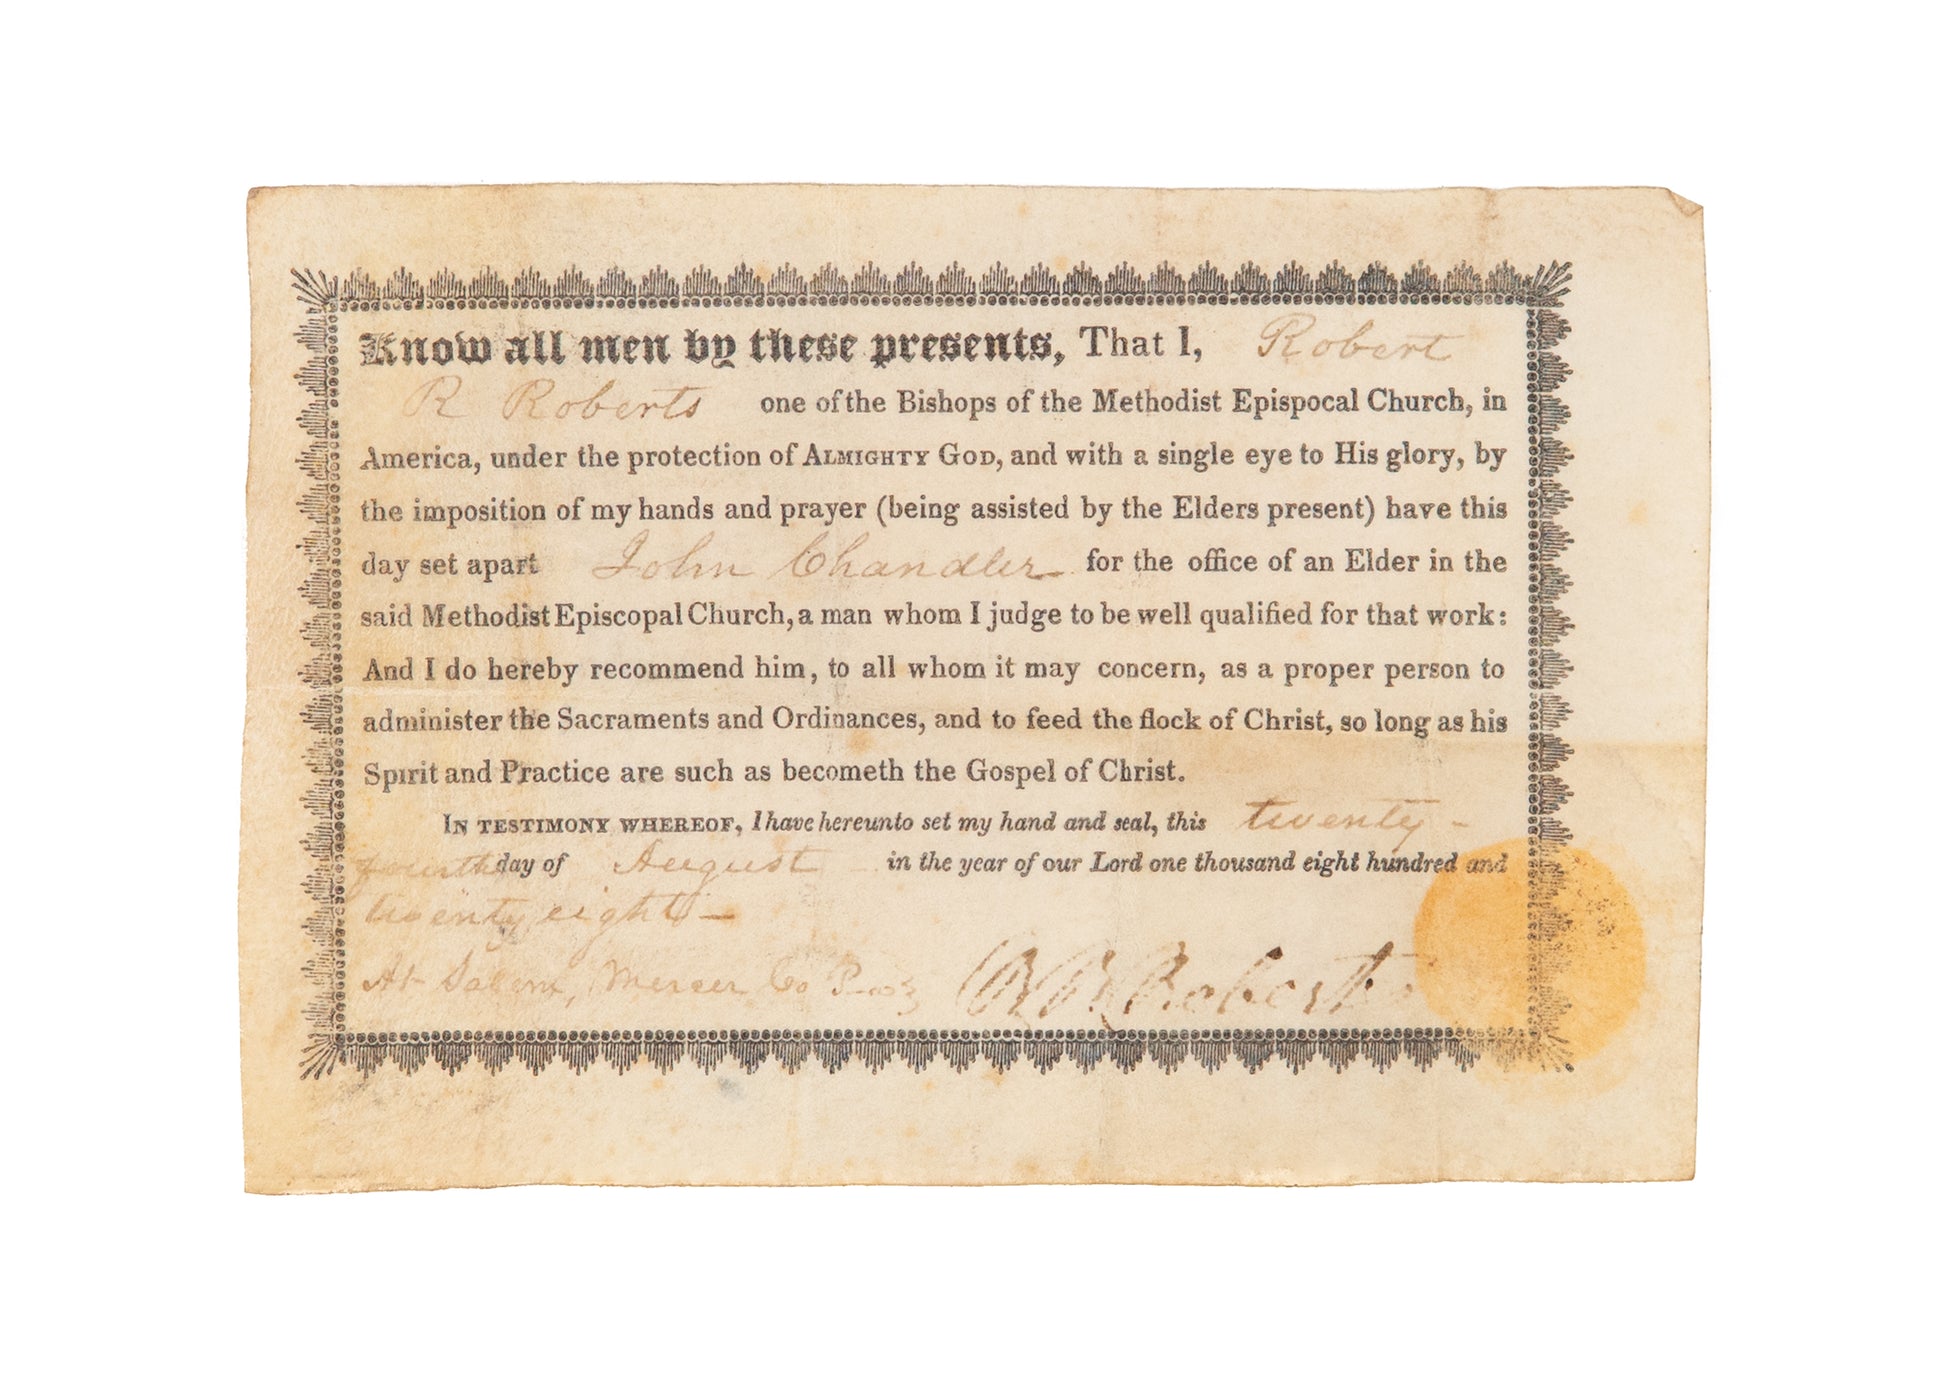 Know all men by these presents, That I, Robert
R Roberts one of the Bishops of the Methodist Epispocal Church, in
America, under the protection of ALMIGHTY GOD, and with a single eye to His glory, by
the imposition of my hands and prayer (being assisted by the Elders present) have this
day set apart John Chandler for the office of an Elder in the
said Methodist Episcopal Church, a man whom I judge to be well qualified for that work:
And I do hereby recommend him, to all whom it may concern, as a proper person to
administer the Sacraments and Ordinances, and to feed the flock of Christ, so long as his
Spirit and Practice are such as becometh the Gospel of Christ.
IN TESTIMONY WHEREOF, I have hereunto set my hand and seal, this twenty-
fourth day of August in the year of our Lord one thousand eight hundred and
twenty eight—
At Salem, Mercer Co R R Roberts